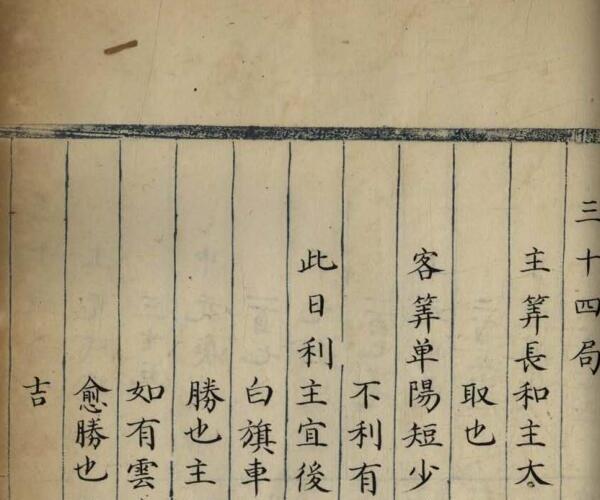 三十四局
主筭長和主太
取也
客筭单陽短少
不利有
此日利主宜後
白旗車
勝也主
如有雲
愈勝也
吉